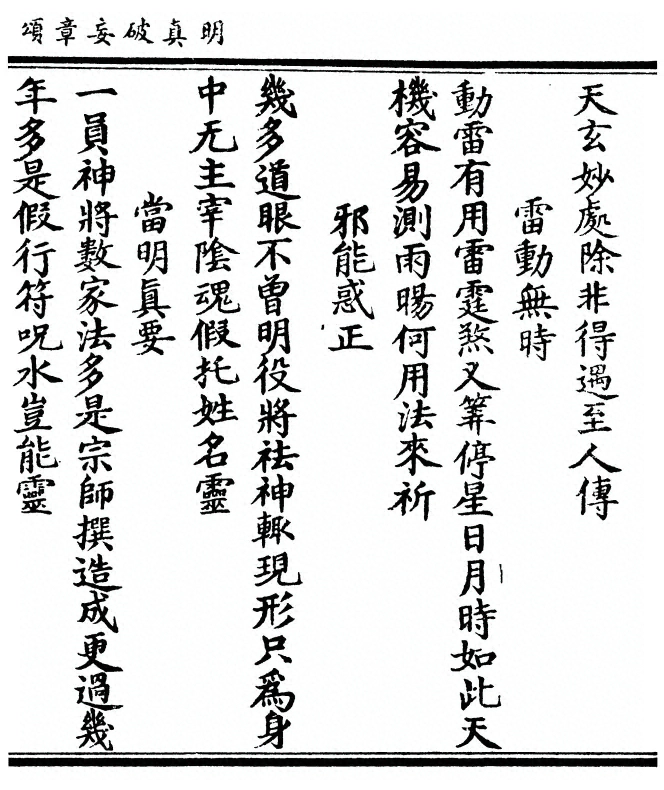 明真破妄章頌
天玄妙處除非得遇至人傳
雷動無時
動雷有用雷霆煞又筭停星日月時如此天
機容易測雨暘何用法來祈
邪能惑正
幾多道眼不曾明役將祛神輒現形只爲身
中无主宰陰魂假托姓名靈
當明眞要
一員神將數家法多是宗師撰造成更過幾
年多是假行符呪水豈能靈